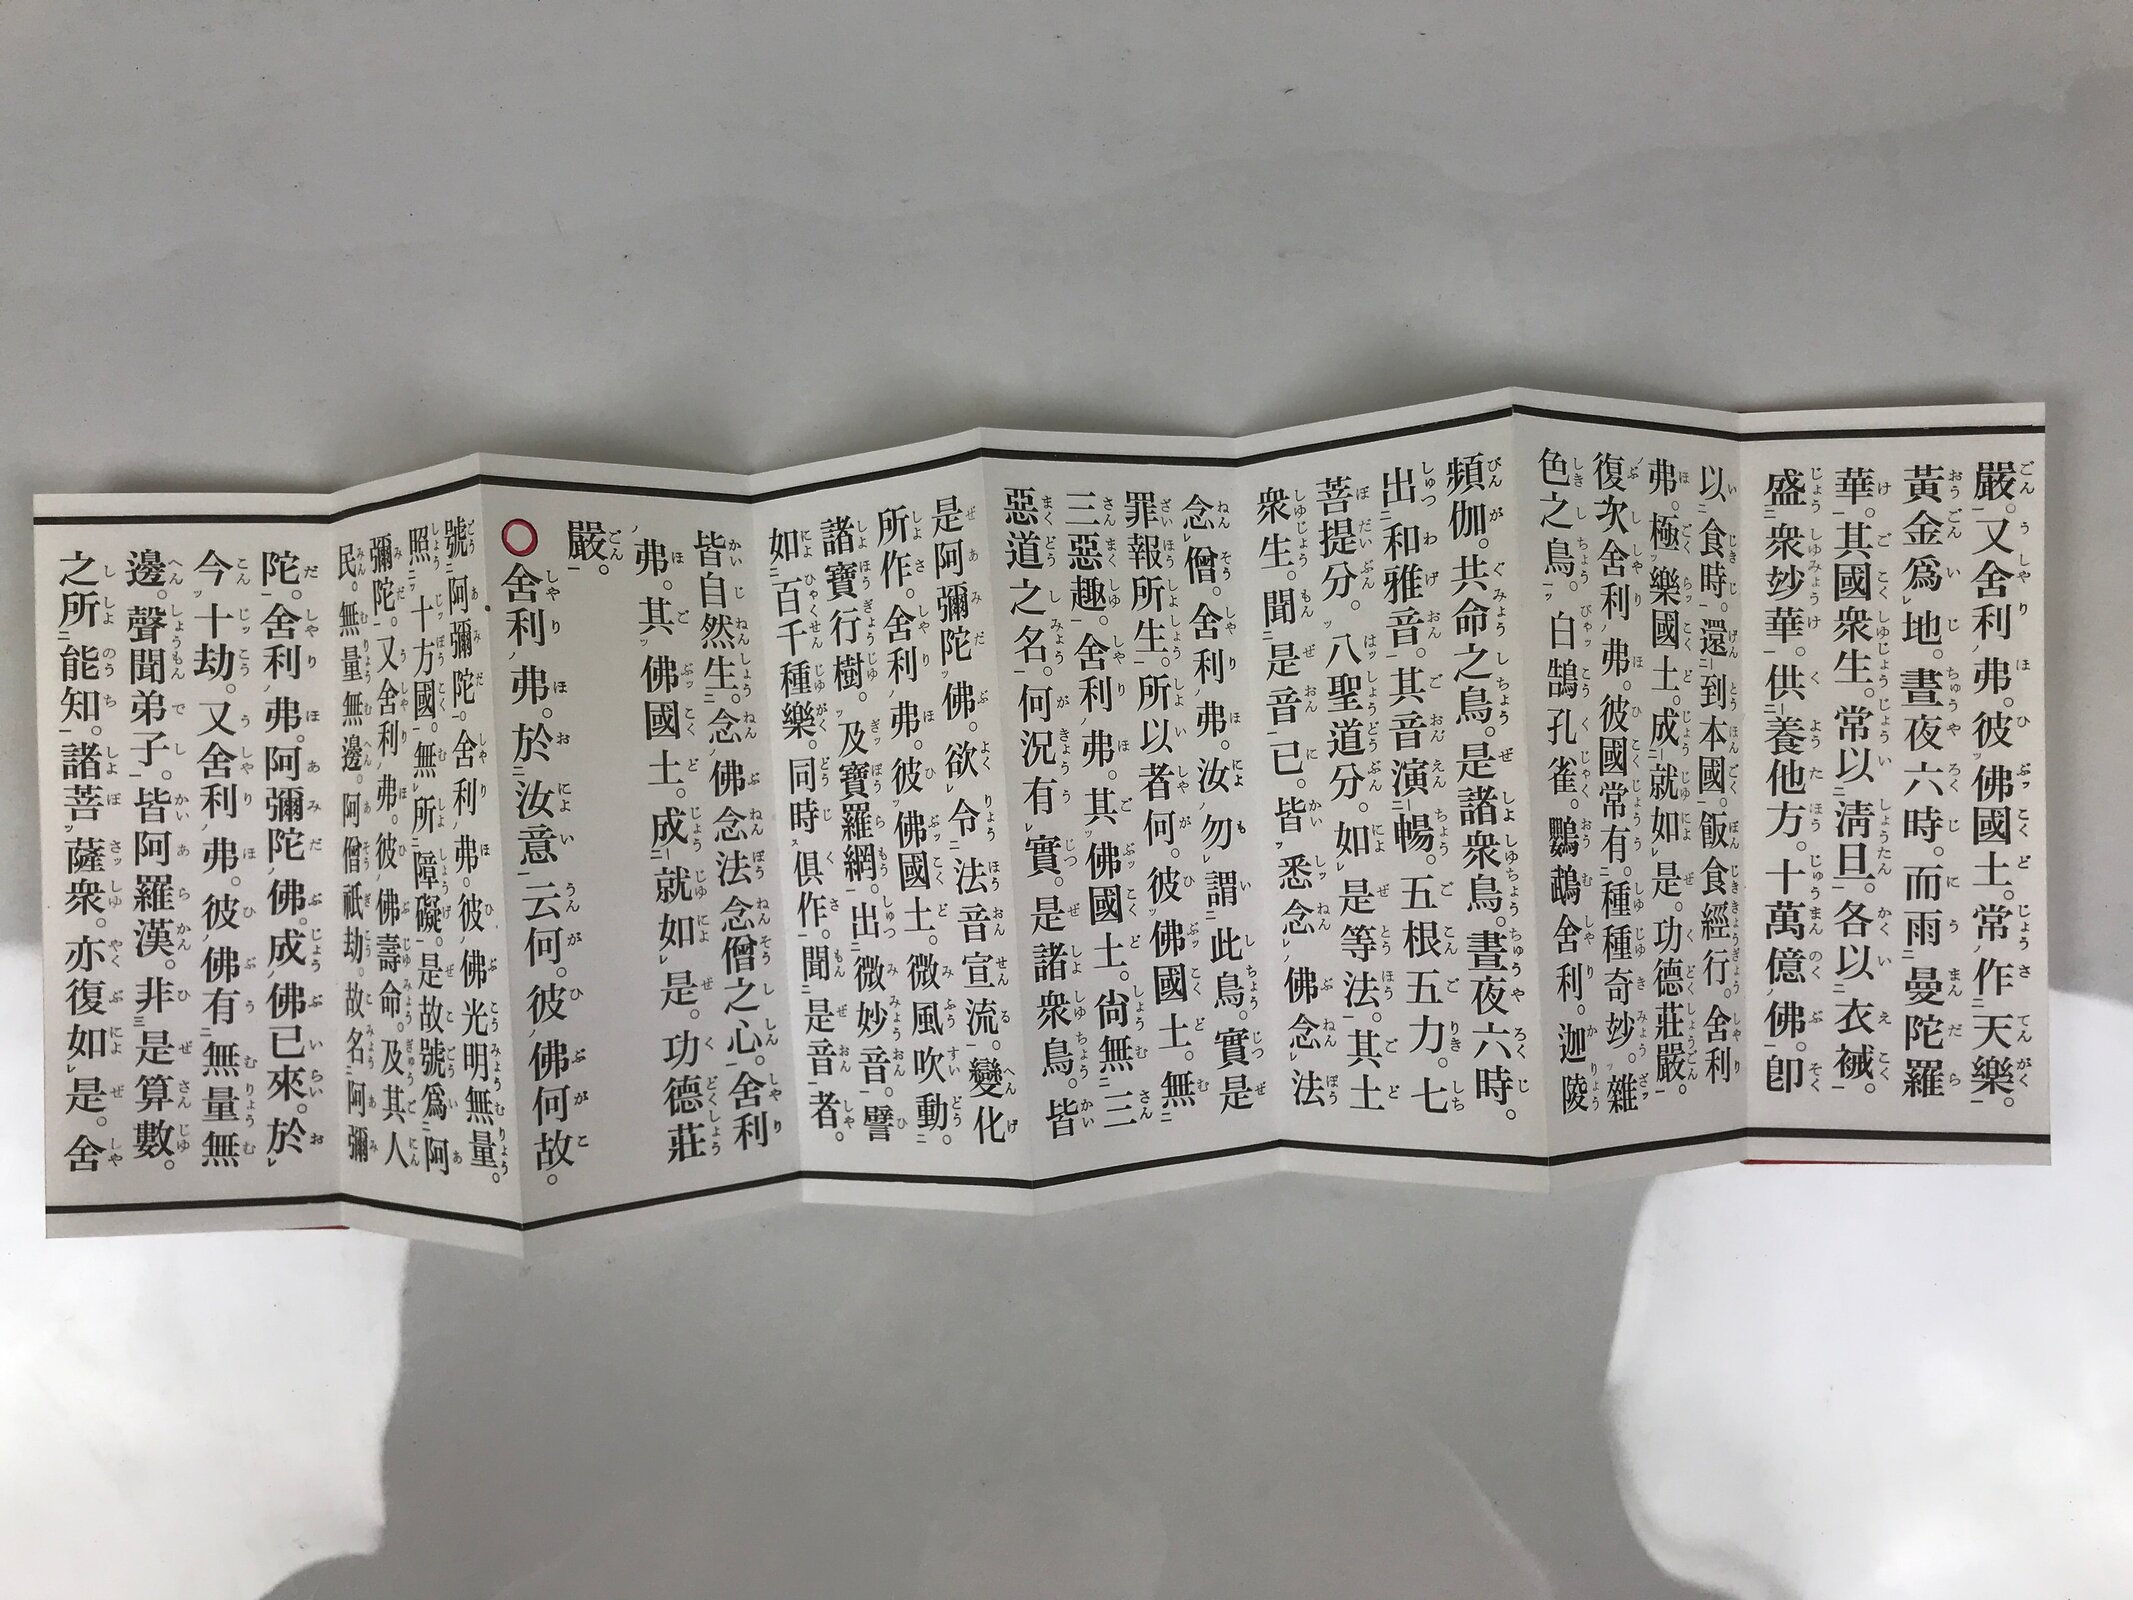 嚴。又舍利弗。彼佛國土。常作天樂。
黃金爲地。晝夜六時。而雨曼陀羅
華。其國衆生。常以淸旦。各以衣裓。
盛衆玅華。供養他方。十萬億佛。卽
以食時。還到本國。飯食經行。舍利
弗。極樂國土。成就如是。功德莊嚴。
復次舍利弗。彼國常有。種種奇玅。雜
色之鳥。白鵠孔雀。鸚鵡舍利。迦陵
頻伽。共命之鳥。是諸衆鳥。晝夜六時。
出和雅音。其音演暢。五根五力。七
菩提分。八聖道分。如是等法。其土
衆生。聞是音已。皆悉念佛念法
念僧。舍利弗。汝勿謂此鳥。實是
罪報所生。所以者何。彼佛國土。無
三惡趣。舍利弗。其佛國土。尙無三
惡道之名。何況有實。是諸衆鳥。皆
是阿彌陀佛。欲令法音宣流。變化
所作。舍利弗。彼佛國土。微風吹動。
諸寶行樹。及寶羅網。出微妙音。譬
如百千種樂。同時俱作。聞是音者。
皆自然生。念佛念法念僧之心。舍利
弗。其佛國土。成就如是。功德莊
嚴。
○舍利弗。於汝意云何。彼佛何故。
號阿彌陀。舍利弗。彼佛光明無量。
照十方國。無所障礙。是故號爲阿
彌陀。又舍利弗。彼佛壽命。及其人
民。無量無邊。阿僧祇劫。故名阿彌
陀。舍利弗。阿彌陀佛。成佛已來。於
今十劫。又舍利弗。彼佛有無量無
邊。聲聞弟子。皆阿羅漢。非是算數。
之所能知。諸菩薩衆。亦復如是。舍